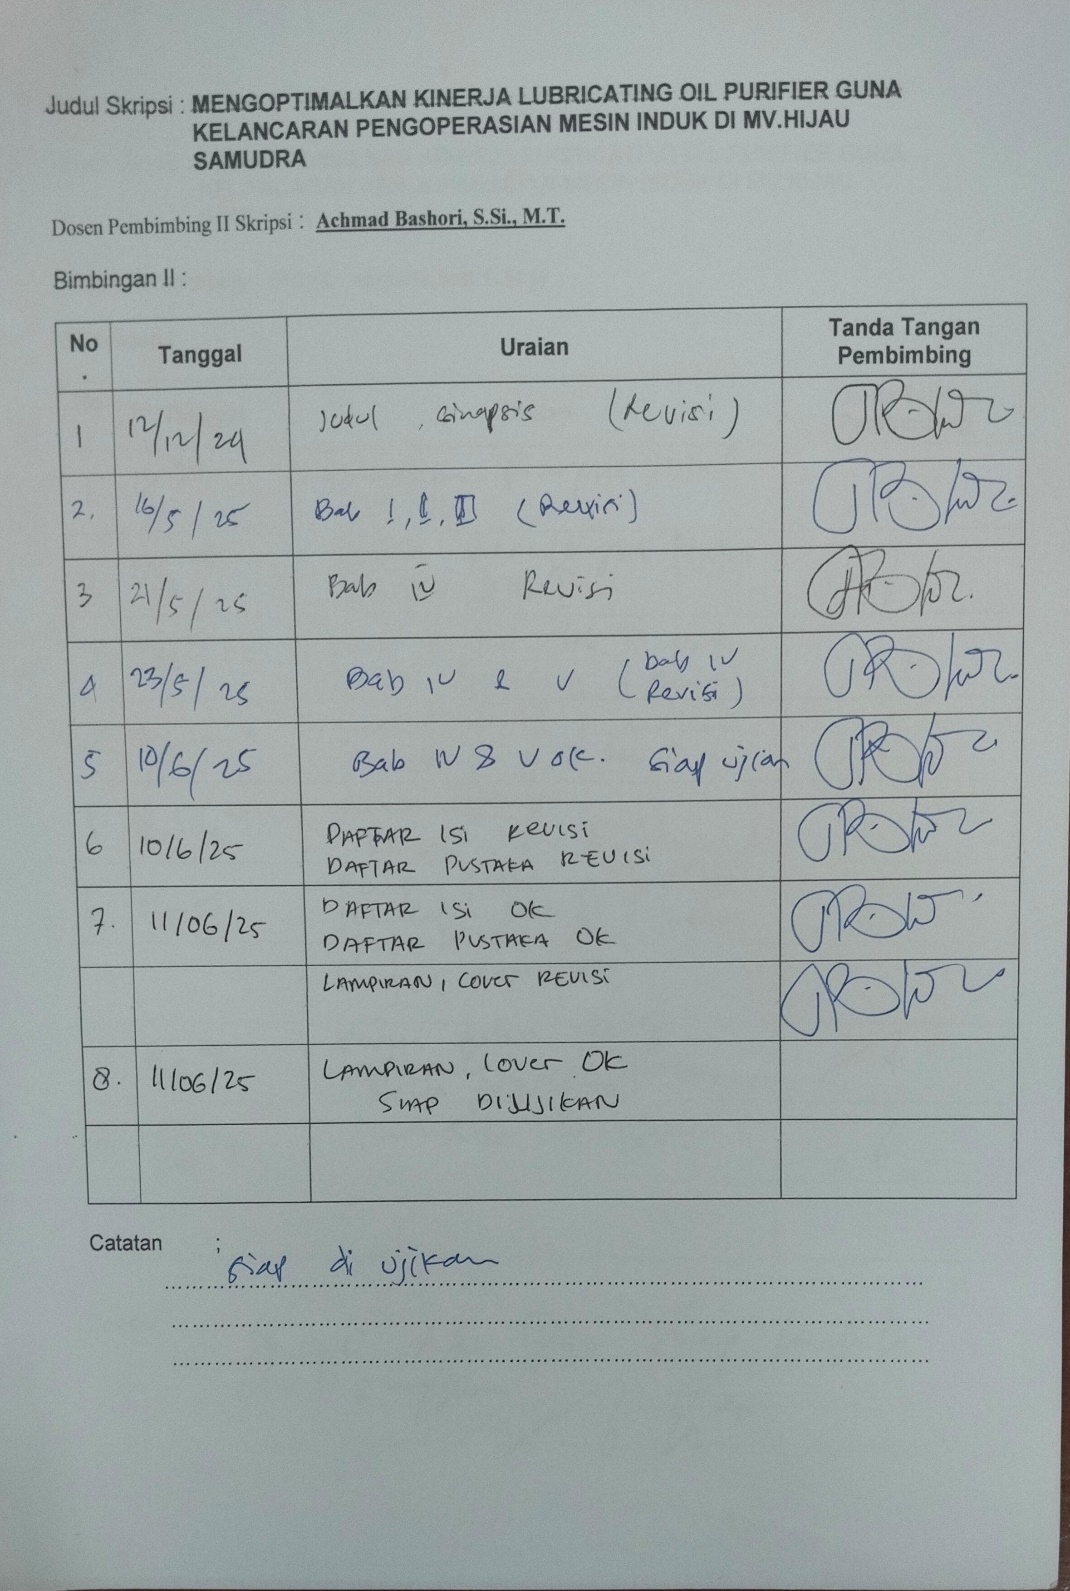 Judul Skripsi : MENGOPTIMALKAN KINERJA LUBRICATING OIL PURIFIER GUNA
KELANCARAN PENGOPERASIAN MESIN INDUK DI MV.HIJAU
SAMUDRA
Dosen Pembimbing II Skripsi : Achmad Bashori, S.Si., M.T.
Bimbingan II :
No. Tanggal Uraian Tanda Tangan Pembimbing
1 12/12/24 Judul, sinopsis (Revisi)
2. 16/5/25 Bab I, II, III (Revisi)
3 21/5/25 Bab IV Revisi
4 23/5/25 Bab IV & V (bab IV Revisi)
5 10/6/25 Bab IV & V OK. Siap ujian
6 10/6/25 DAFTAR ISI REVISI
DAFTAR PUSTAKA REVISI
7. 11/06/25 DAFTAR ISI OK
DAFTAR PUSTAKA OK
LAMPIRAN, COVER REVISI
8. 11/06/25 LAMPIRAN, Cover OK
SIAP DIUJIKAN
Catatan ;
Siap di ujikan